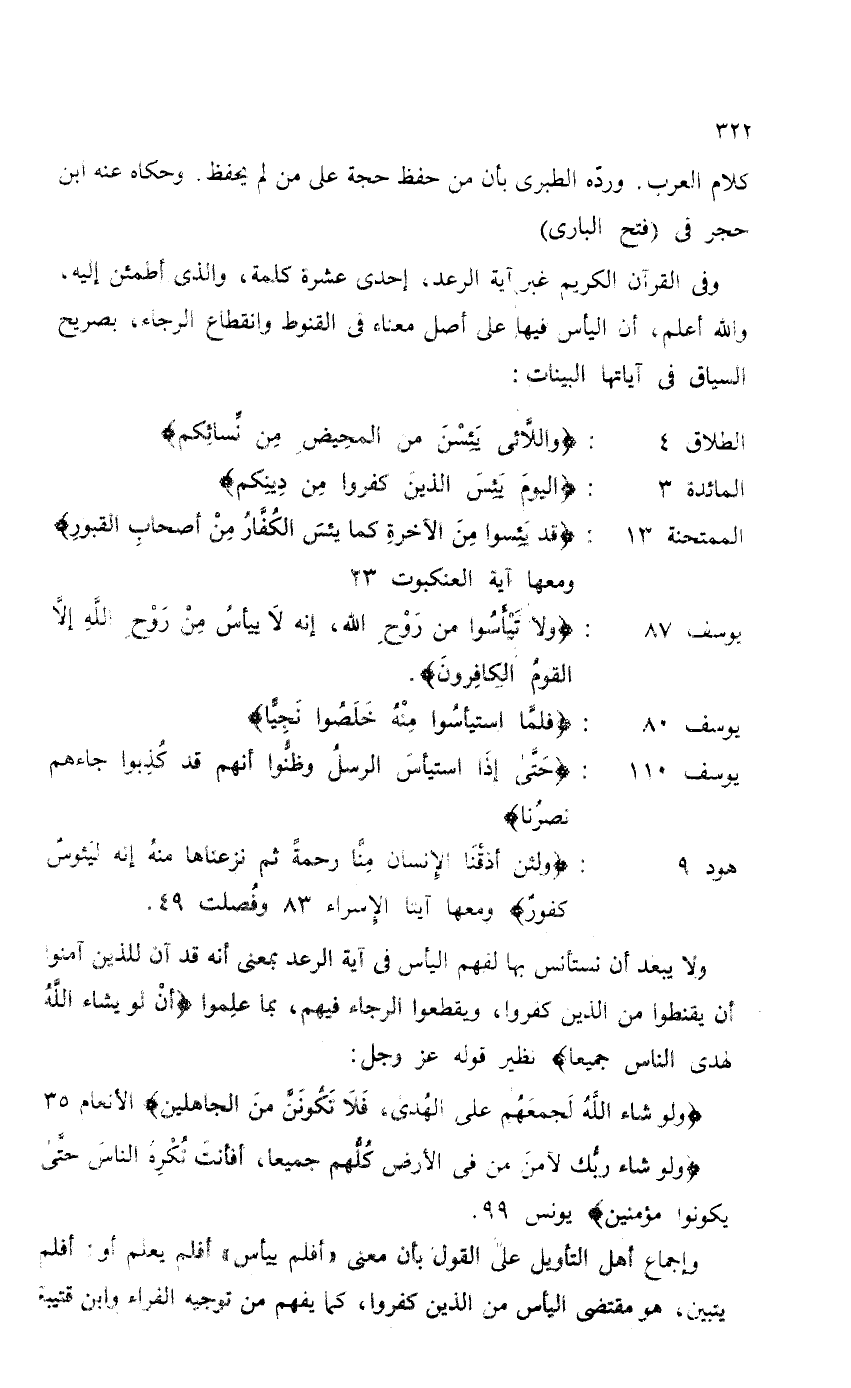 ٣٢٢
كلام العرب. وردّه الطبرى بأن من حفظ حجة على من لم يحفظ. وحكاه عنه ابن
حجر فى (فتح البارى)
وفى القرآن الكريم غير آية الرعد، إحدى عشرة كلمة، والذى أطمئن إليه،
والله أعلم، أن اليأس فيها على أصل معناه فى القنوط وانقطاع الرجاء، بصريح
السياق فى آياتها البينات :
الطلاق ٤ : ﴿واللَّائى يَئِسْنَ من المحِيضِ مِن نِّسائِكم﴾
المائدة ٣ : ﴿اليومَ يَئِسَ الذينَ كفروا مِن دِينِكم﴾
الممتحنة ١٣ : ﴿قد يَئِسوا مِنَ الآخرةِ كما يئسَ الكُفَّارُ مِنْ أصحابِ القبورِ﴾
ومعها آية العنكبوت ٢٣
يوسف ٨٧ : ﴿ولا تَيْأَسُوا من رَوْحِ الله، إنه لَا ييأسُ مِنْ رَوْحِ اللَّهِ إلَّا
القومُ الكافِرونَ﴾.
يوسف ٨٠ : ﴿فلمَّا استيأسُوا مِنْهُ خَلَصُوا نَجِيًّا﴾
يوسف ١١٠ : ﴿حَتَّىٰ إذَا استيأسَ الرسلُ وظنُّوا أنهم قد كُذِبوا جاءهم
نصرُنا﴾
هود ٩ : ﴿ولئن أذقْنَا الإنسان مِنَّا رحمةً ثم نزعناها منهُ إنه ليَئوسٌ
كفورٌ﴾ ومعها آيتا الإسراء ٨٣ وفُصلت ٤٩.
ولا يبعد أن نستأنس بها لفهم اليأس فى آية الرعد بمعنى أنه قد آن للذين آمنوا
أن يقنطوا من الذين كفروا، ويقطعوا الرجاء فيهم، بما علِموا ﴿أنْ لو يشاء اللَّهُ
لهدى الناس جميعا﴾ نظير قوله عز وجل:
﴿ولو شاء اللَّهُ لَجمعَهُم على الهُدىٰ، فَلَا تَكُونَنَّ منَ الجاهلين﴾ الأنعام ٣٥
﴿ولو شاء ربُّك لآمنَ من فى الأرض كُلُّهم جميعا، أفأنتَ تُكْرِهُ الناسَ حتَّىٰ
يكونوا مؤمنين﴾ يونس ٩٩.
وإجماع أهل التأويل على القول بأن معنى «أفلم ييأس» أفلم يعلم أو: أفلم
يتبين، هو مقتضى اليأس من الذين كفروا، كما يفهم من توجيه الفراء وابن قتيبة